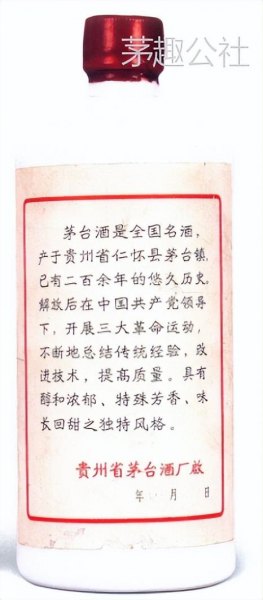 茅趣公社
茅台酒是全国名酒,
产于贵州省仁怀县茅台镇,
已有二百余年的悠久历史。
解放后在中国共产党领导
下,开展三大革命运动,
不断地总结传统经验,改
进技术,提高质量。具有
醇和浓郁、特殊芳香、味
长回甜之独特风格。
贵州省茅台酒厂啟
年 月 日